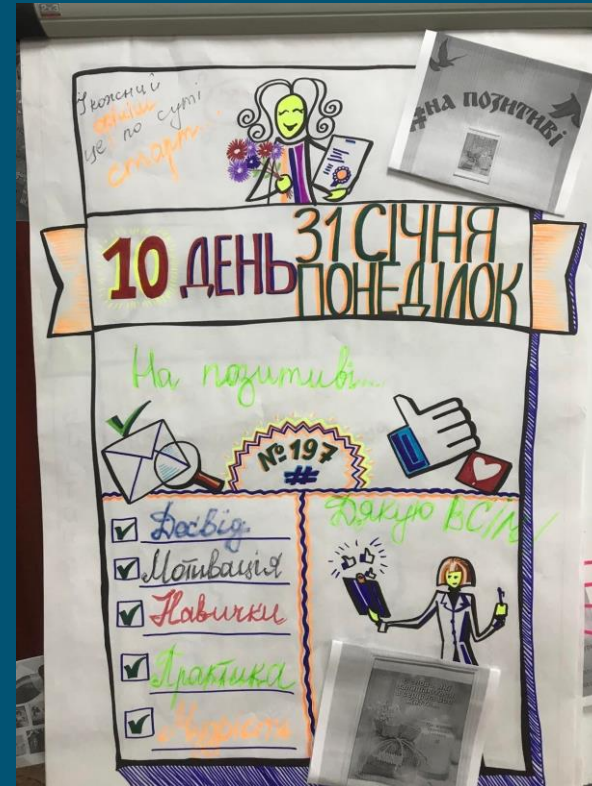 І кожний
фініш
це по суті
старт...
#НА ПОЗИТИВІ
10 ДЕНЬ
31 СІЧНЯ
ПОНЕДІЛОК
На позитиві...
№197
#
Дякую ВСІМ!
Досвід
Мотивація
Навички
Практика
Мудрість